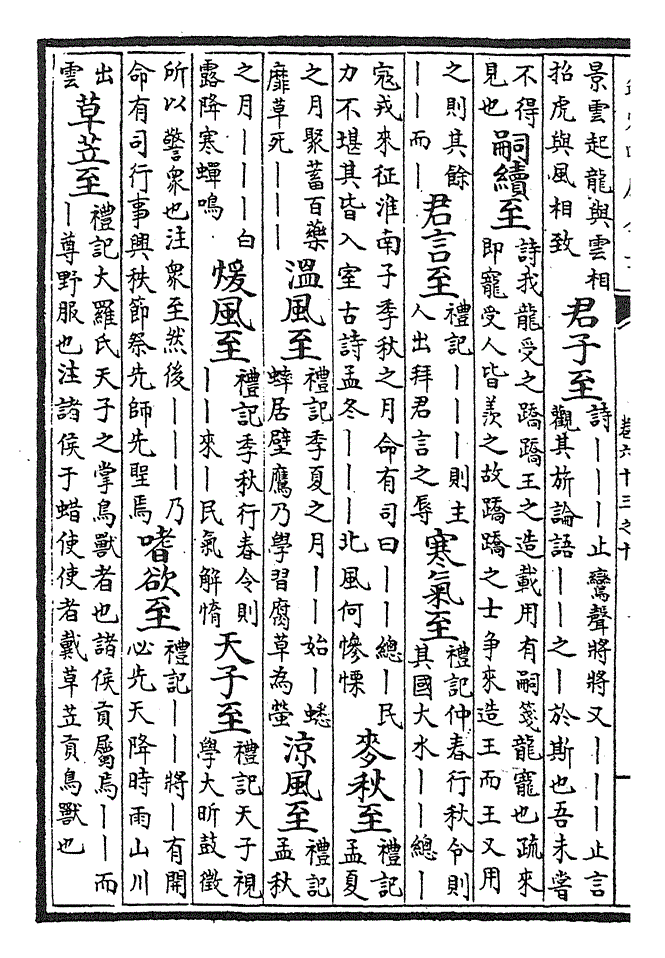 卷六十三之十
景雲起龍與雲相
招虎與風相致
君子至
詩｜｜｜止鸞聲將將又｜｜｜止言
觀其旂論語｜｜之｜於斯也吾未嘗
不得
見也
嗣續至
詩我龍受之蹻蹻王之造載用有嗣箋龍寵也疏來
即寵受人皆羨之故蹻蹻之士争來造王而王又用
之則其餘
｜｜而｜
君言至
禮記｜｜｜則主
人出拜君言之辱
寒氣至
禮記仲春行秋令則
其國大水｜｜總｜
寇戎來征淮南子季秋之月命有司曰｜｜總｜民
力不堪其皆入室古詩孟冬｜｜｜北風何慘慄
麥秋至
禮記
孟夏
之月聚蓄百藥
靡草死｜｜｜
溫風至
禮記季夏之月｜｜始｜蟋
蟀居壁鷹乃學習腐草為螢
涼風至
禮記
孟秋
之月｜｜｜白
露降寒蟬鳴
煖風至
禮記季秋行春令則
｜｜來｜民氣解惰
天子至
禮記天子視
學大昕鼓徵
所以警衆也注衆至然後｜｜｜乃
命有司行事興秩節祭先師先聖焉
嗜欲至
禮記｜｜將｜有開
必先天降時雨山川
出
雲
草笠至
禮記大羅氏天子之掌鳥獸者也諸侯貢屬焉｜｜而
｜尊野服也注諸侯于蜡使使者戴草笠貢鳥獸也